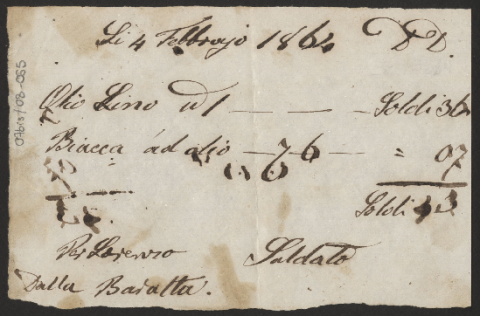 Li 4 Febbrajo 1864 D D.
Olio Lino lb 1 — — — Soldi 36
Biacca ad olio — 7 6 — = 07
Soldi 43
Per Lorenzo Saldato
Dalla Baratta.
07bis/08-085